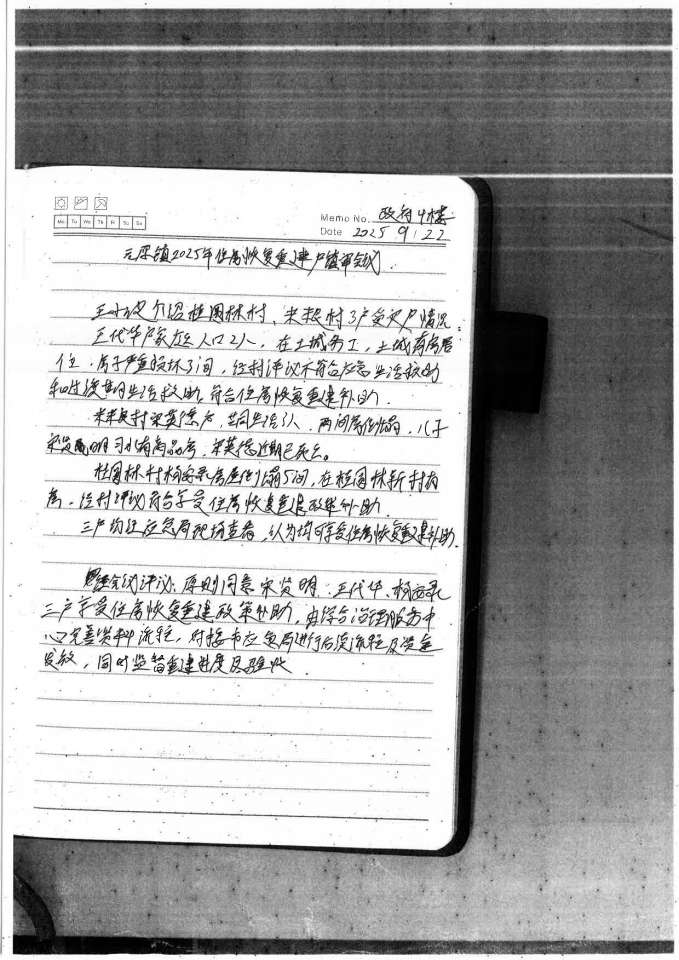 Mo Tu We Th Fr Sa Su
Memo No. 政府4楼
Date 2025 9.22
元 镇2025年住房恢复重建户镇审会议
王 介绍桂园林村、 村3户受灾户情况。
王代华户家庭人口2人,在土城务工,土城有房居
住,房子严重损坏3间,经村评议不符合应急生活救助
和过渡期生活救助,符合住房恢复重建补助。
村宋英 户,共同生活1人,两间房倒塌,儿子
宋贤明 有商品房,宋英 近期已死亡。
桂园林村杨 房屋倒塌5间,在桂园林新村有
房,经村评议符合享受住房恢复重建政策补助。
三户均经应急局现场查看,认为均可享受住房恢复重建补助。
经会议评议:原则同意宋贤明、王代华、杨
三户享受住房恢复重建政策补助,由综合治理服务中
心完善资料流程,对接市应急局进行后续流程及资金
发放,同时监督重建进度及验收